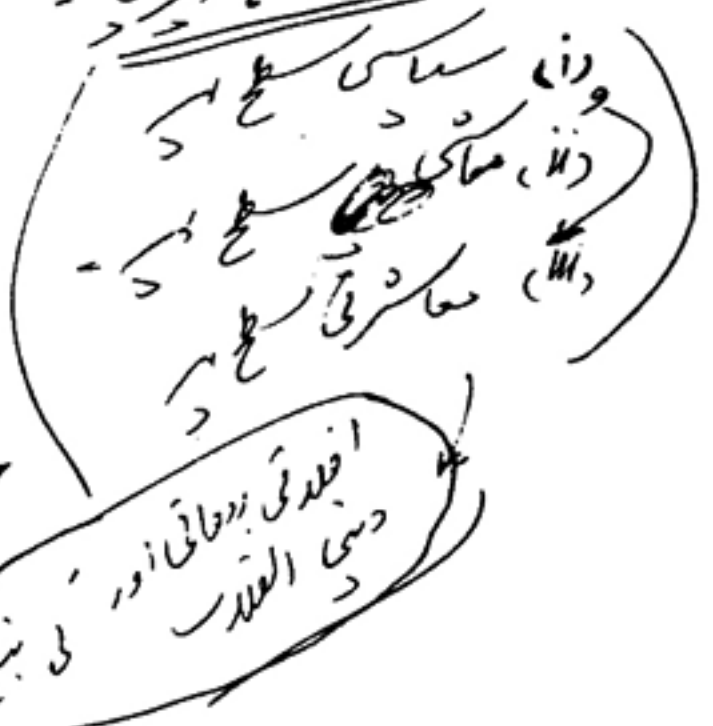 (i) سیاسی سطح پر
(ii) معاشی سطح پر -
(iii) معاشرتی سطح پر
اخلاقی روحانی اور
دینی انقلاب کی